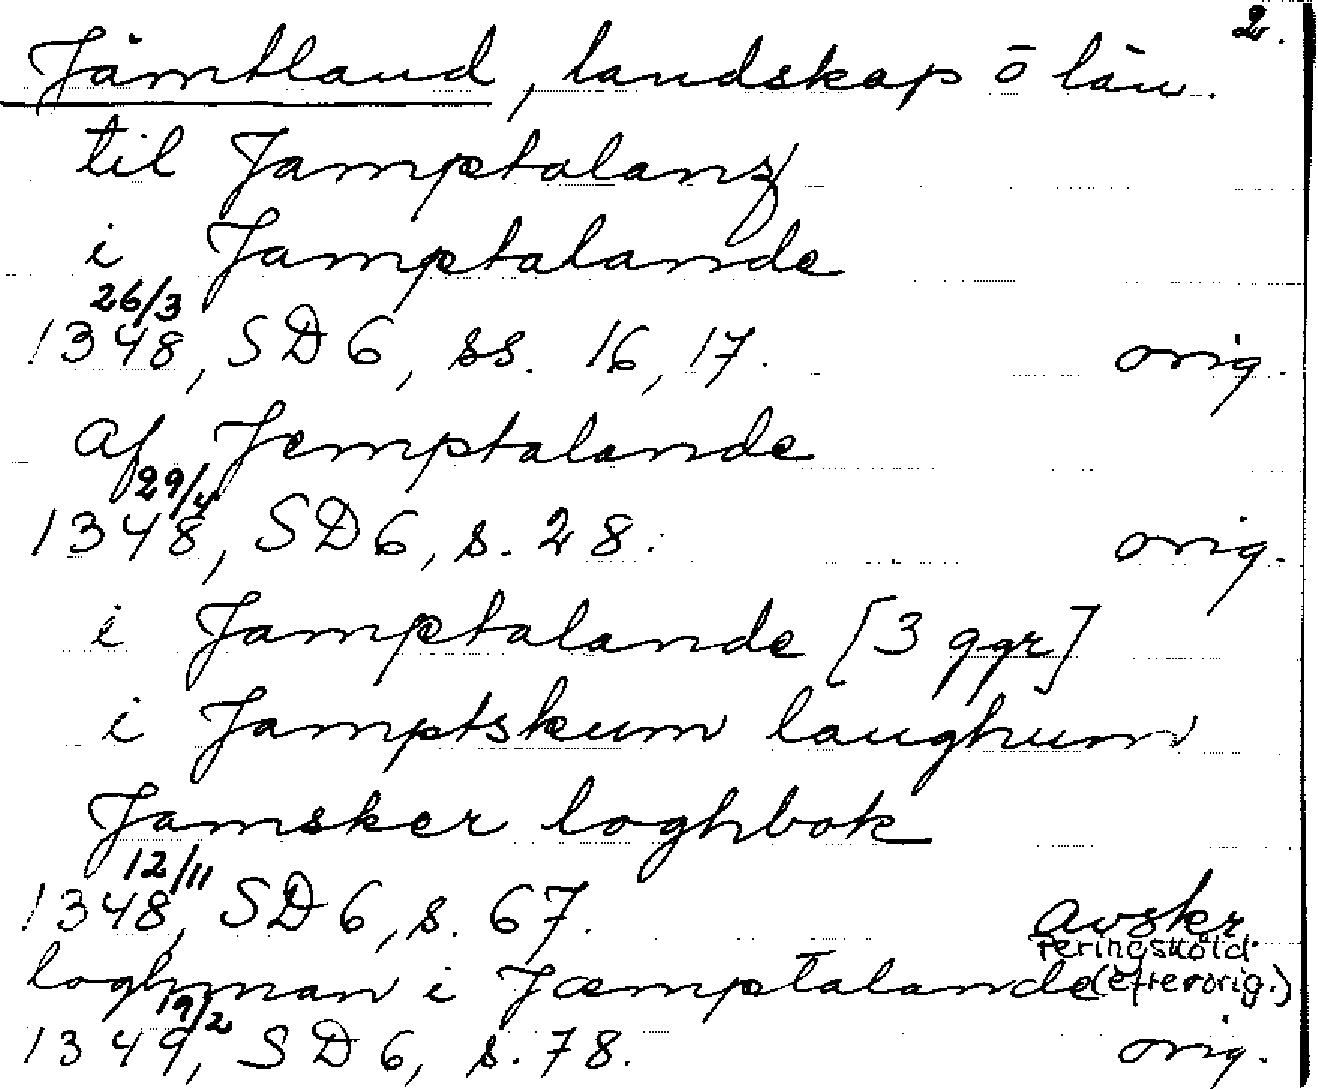 2.
Jämtland, landskap ō län.
til Jamptalanz
i Jamptalande
26/3
1348, SD 6, ss. 16, 17. orig.
af Jemptalande
29/4
1348, SD 6, s. 28. orig.
i Jamptalande [3 ggr]
i Jamptskum laughum
Jamsker loghbok
12/11
1348, SD 6, s. 67. avskr
Peringskiöld
loghman i Jæmptalande (efter orig.)
19/2
1349, SD 6, s. 78. orig.